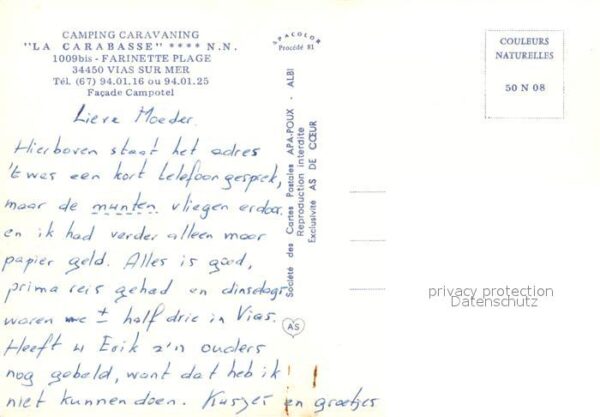 CAMPING CARAVANING
"LA CARABASSE" **** N.N.
1009bis - FARINETTE PLAGE
34450 VIAS SUR MER
Tél. (67) 94.01.16 ou 94.01.25
Façade Campotel
Lieve Moeder.
Hierboven staat het adres
't was een kort telefoongesprek,
maar de munten vliegen erdoor
en ik had verder alleen maar
papier geld. Alles is goed,
prima reis gehad en dinsdags
waren we ± half drie in Vias.
Heeft u Erik z'n ouders
nog gebeld, want dat heb ik
niet kunnen doen. Kusjes en groetjes
APACOLOR
Procédé 81
Société des Cartes Postales APA-POUX - ALBI
Reproduction interdite
Exclusivité AS DE CŒUR
AS
COULEURS
NATURELLES
50 N 08
privacy protection
Datenschutz